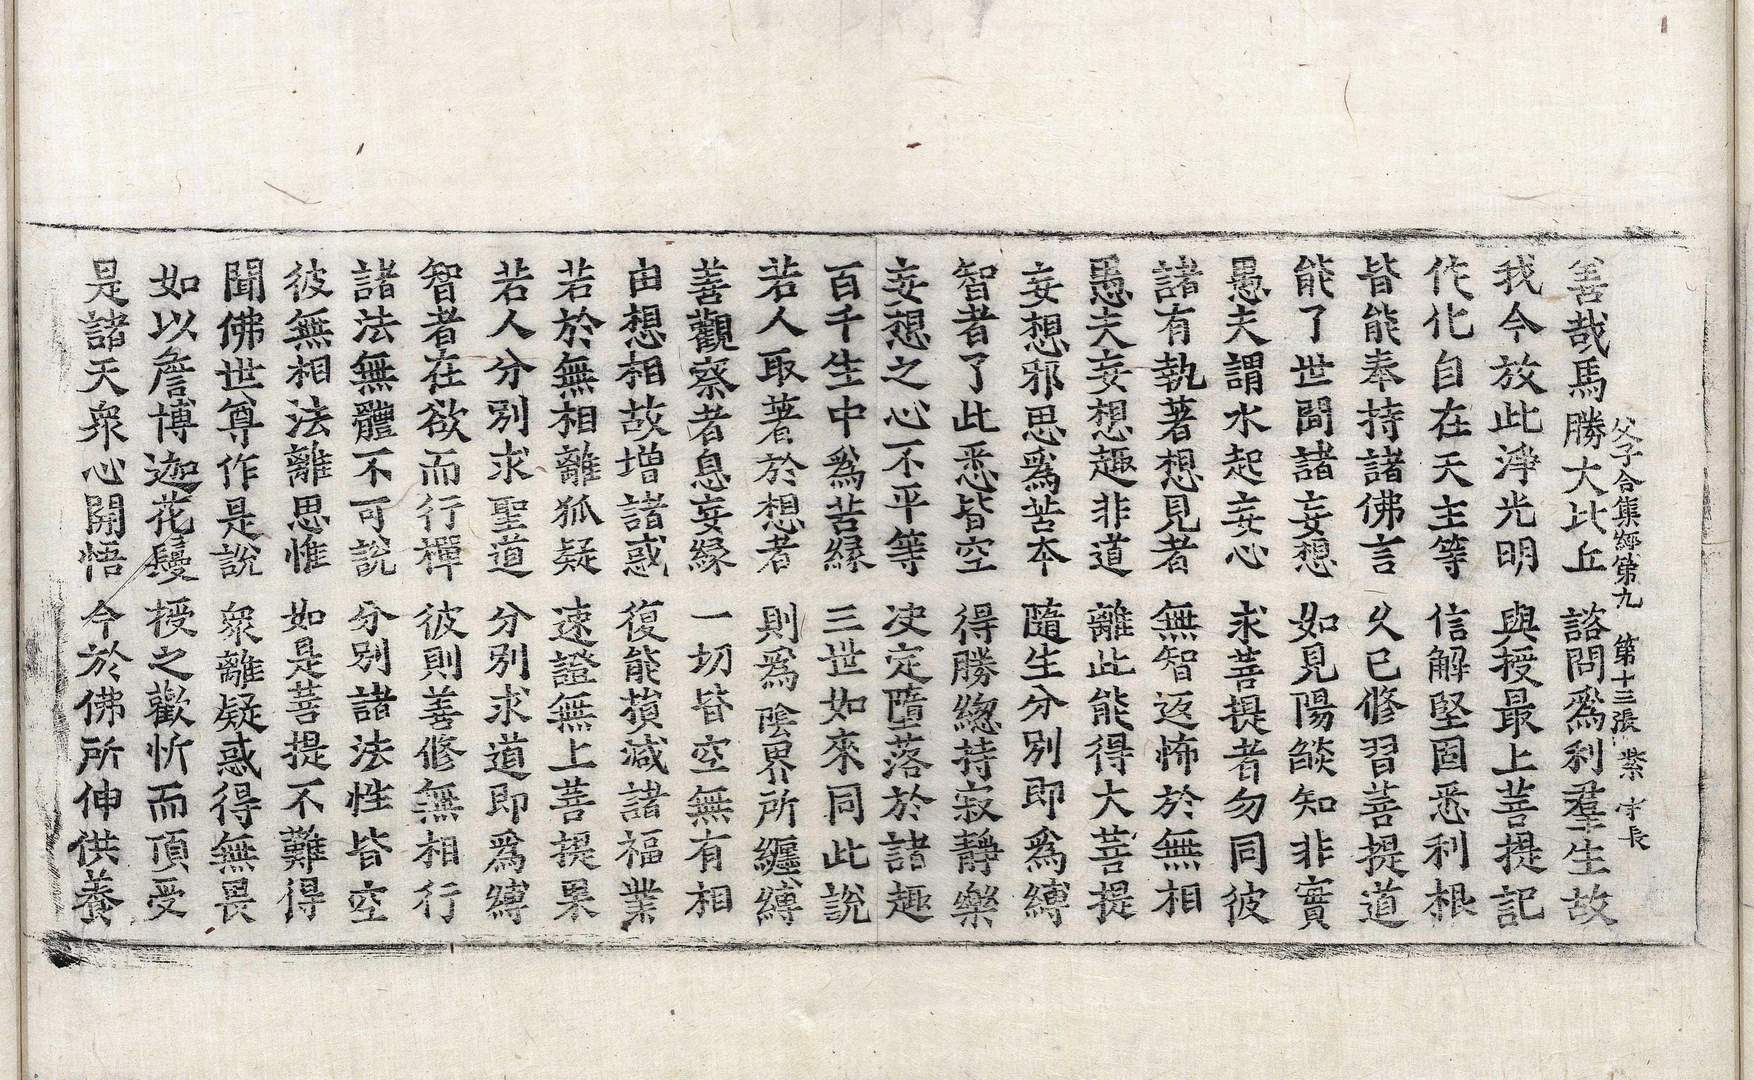 父子合集經第九　第十三張　紫　守長
善哉馬勝大比丘　諮問爲利羣生故
我今放此淨光明　與授最上菩提記
作化自在天主等　信解堅固悉利根
皆能奉持諸佛言　久已修習菩提道
能了世間諸妄想　如見陽燄知非實
愚夫謂水起妄心　求菩提者勿同彼
諸有執著想見者　無智返怖於無相
愚夫妄想趣非道　離此能得大菩提
妄想邪思爲苦本　隨生分別即爲縛
智者了此悉皆空　得勝緫持寂靜樂
妄想之心不平等　决定墮落於諸趣
百千生中爲苦縁　三世如來同此說
若人取著於想者　則爲陰界所纏縛
善觀察者息妄縁　一切皆空無有相
由想相故增諸惑　復能損減諸福業
若於無相離狐疑　速證無上菩提果
若人分別求聖道　分別求道即爲縛
智者在欲而行禪　彼則善修無相行
諸法無體不可說　分別諸法性皆空
彼無相法離思惟　如是菩提不難得
聞佛世尊作是說　衆離疑惑得無畏
如以詹博迦花鬘　授之歡忻而頂受
是諸天衆心開悟　今於佛所伸供養